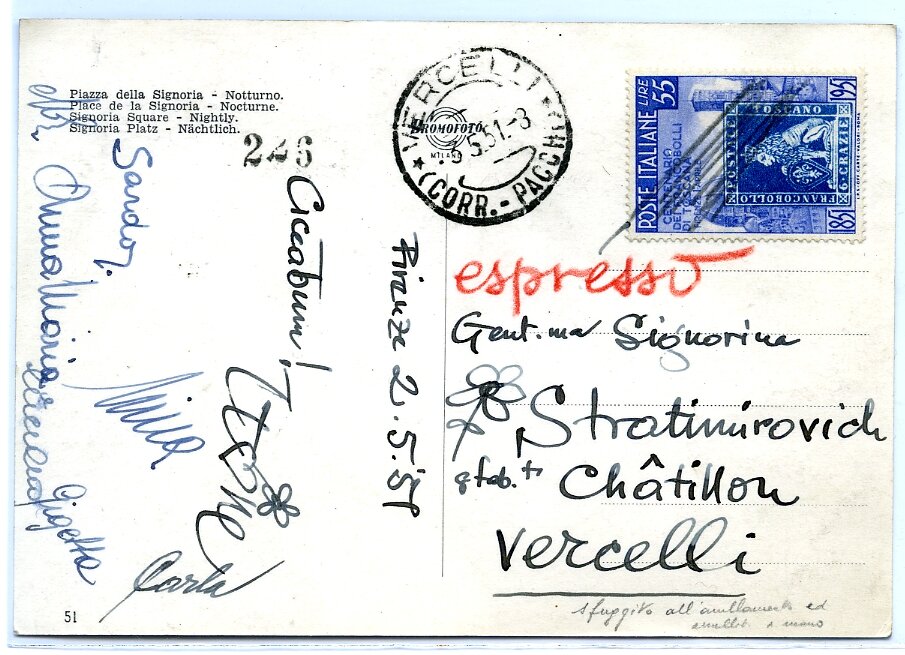 Piazza della Signoria - Notturno.
Place de la Signoria - Nocturne.
Signoria Square - Nightly.
Signoria Platz - Nächtlich.
246
VERCELLI
(CORR. - PACCHI)
5.51.-8
PROMOFOTO
MILANO
POSTE ITALIANE LIRE 55
CENTENARIO
DEI FRANCOBOLLI
DI TOSCANA
1851 1951
FRANCOBOLLO POSTALE TOSCANO
6 CRAZIE
Sandoz.
Anna Maria
Gigetta
Carla
Firenze 2.5.51
espresso
Gent.ma Signorina
Stratimirovich
stab.to Châtillon
Vercelli
sfuggito all'annullamento ed
annullato a mano
51